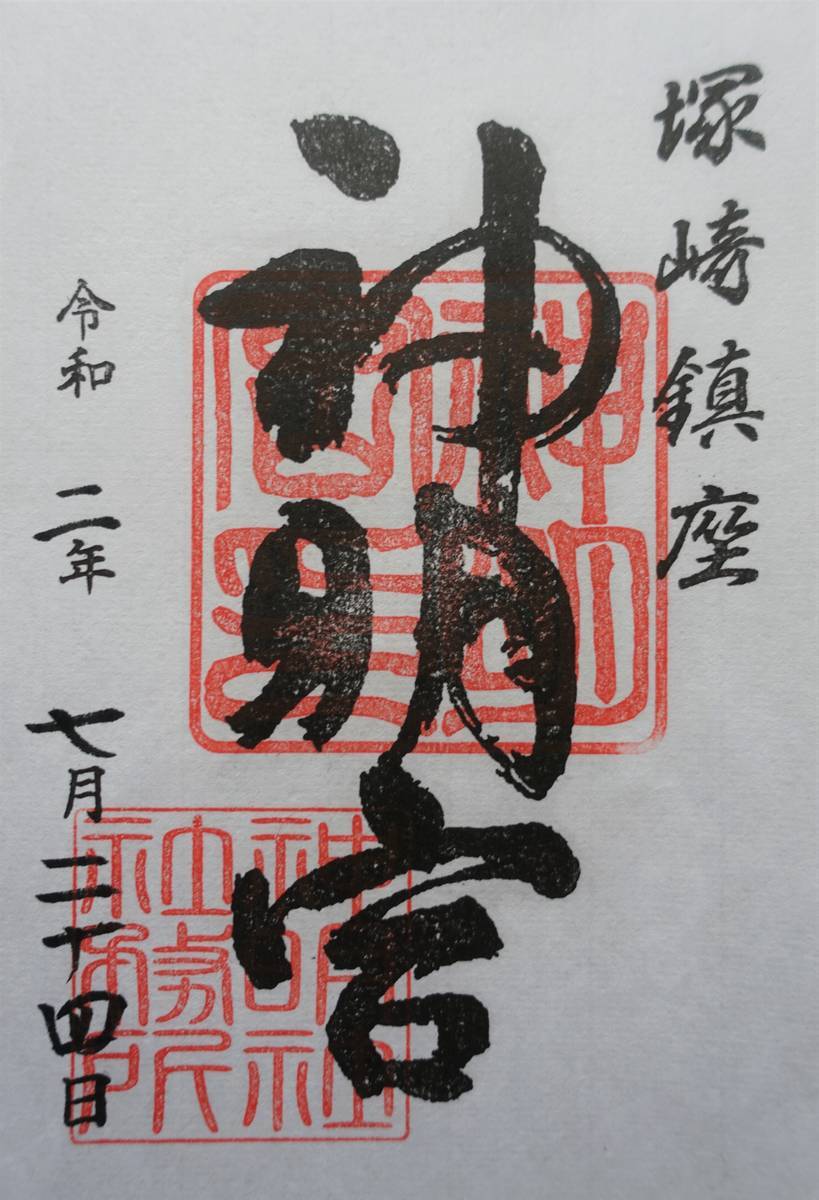 塚崎鎮座
神明宮
令和 二年 七月 二十四日
神明
宮
神明社
社務所